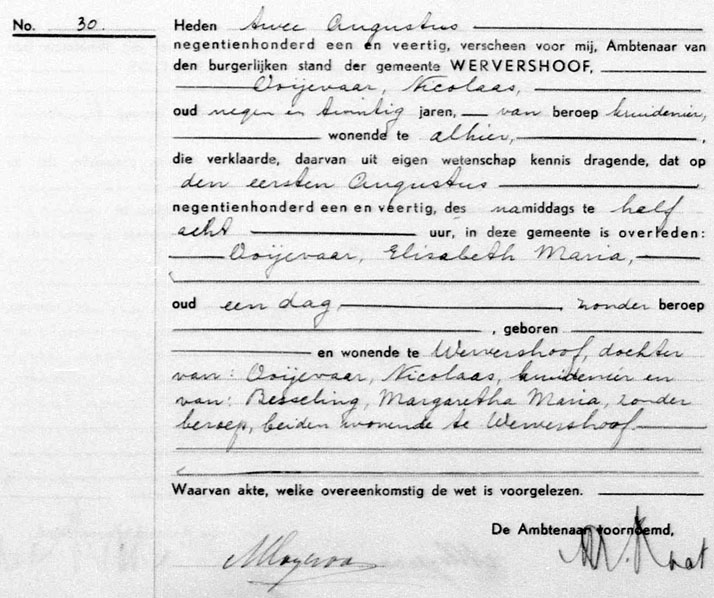 No. 30. Heden twee Augustus
negentienhonderd een en veertig, verscheen voor mij, Ambtenaar van
den burgerlijken stand der gemeente WERVERSHOOF,
Ooijevaar, Nicolaas,
oud negen en twintig jaren, van beroep kruidenier,
wonende te alhier,
die verklaarde, daarvan uit eigen wetenschap kennis dragende, dat op
den eersten Augustus
negentienhonderd een en veertig, des namiddags te half
acht uur, in deze gemeente is overleden:
Ooijevaar, Elisabeth Maria,
oud een dag, zonder beroep
, geboren
en wonende te Wervershoof, dochter
van: Ooijevaar, Nicolaas, kruidenier en
van: Besseling, Margaretha Maria, zonder
beroep, beiden wonende te Wervershoof.
Waarvan akte, welke overeenkomstig de wet is voorgelezen.
De Ambtenaar voornoemd,